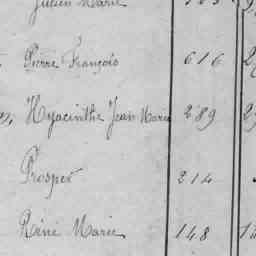 Julien Marie
Pierre François 616
Hyacinthe Jean Marie 289
Prosper 214
Réné Marie 148